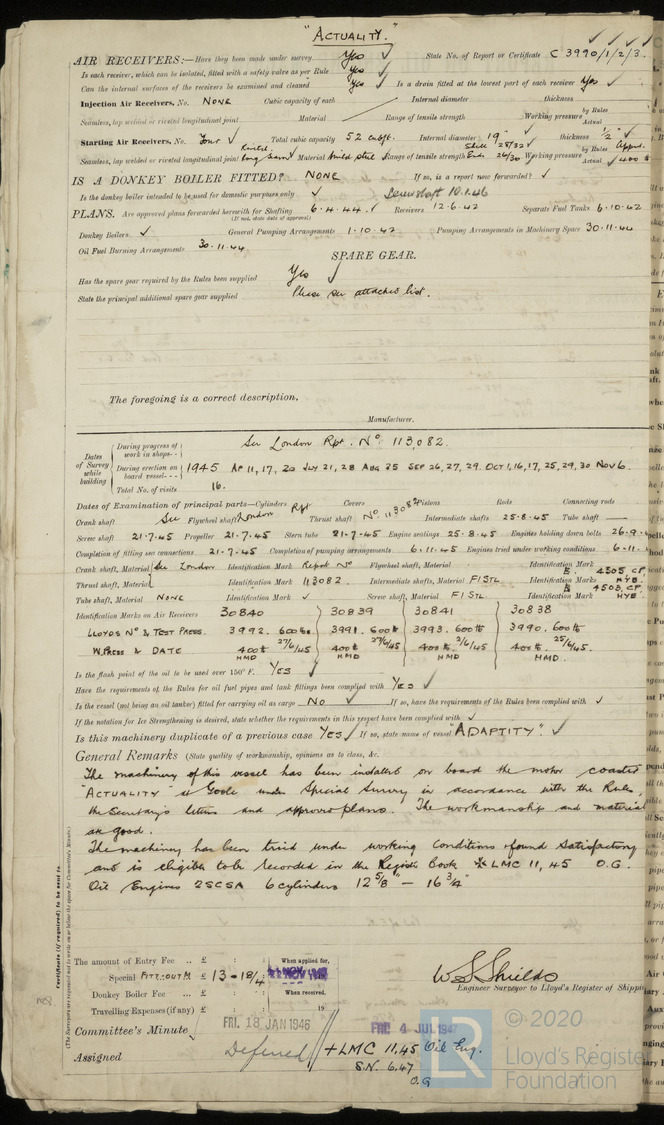 "ACTUALITY."
AIR RECEIVERS:—Have they been made under survey Yes ✓ State No. of Report or Certificate C 3990/1/2/3.
Is each receiver, which can be isolated, fitted with a safety valve as per Rule Yes ✓
Can the internal surfaces of the receivers be examined and cleaned Yes ✓ Is a drain fitted at the lowest part of each receiver Yes ✓
Injection Air Receivers, No. NONE Cubic capacity of each Internal diameter thickness
Seamless, lap welded or riveted longitudinal joint Material Range of tensile strength Working pressure by Rules Actual
Starting Air Receivers, No. Four ✓ Total cubic capacity 52 cu.ft. Internal diameter 19" ✓ thickness 1/2" ✓
Seamless, lap welded or riveted longitudinal joint Riveted long. seam ✓ Material mild steel Range of tensile strength Shell 28/32 Ends 26/30 Working pressure by Rules Appd. Actual 400 ✓
IS A DONKEY BOILER FITTED? NONE If so, is a report now forwarded? ✓
Is the donkey boiler intended to be used for domestic purposes only ✓ Screwshaft 10.1.46
PLANS. Are approved plans forwarded herewith for Shafting 6.4.44. ✓ Receivers 12.6.42 Separate Fuel Tanks 6.10.42
(If not, state date of approval)
Donkey Boilers ✓ General Pumping Arrangements 1.10.42 Pumping Arrangements in Machinery Space 30.11.44
Oil Fuel Burning Arrangements 30.11.44
SPARE GEAR.
Has the spare gear required by the Rules been supplied Yes ✓
State the principal additional spare gear supplied Please see attached list.
The foregoing is a correct description,
Manufacturer.
Dates of Survey while building
During progress of work in shops - - See London Rpt. No. 113,082.
During erection on board vessel - - - 1945 AP 11, 17, 20 JLY 21, 28 AUG 25 SEP 26, 27, 29. OCT 1, 16, 17, 25, 29, 30 NOV 6.
Total No. of visits 16.
Dates of Examination of principal parts—Cylinders Covers Pistons Rods Connecting rods
Crank shaft See Flywheel shaft London Rpt Thrust shaft No. 113082 Intermediate shafts 25.8.45 Tube shaft —
Screw shaft 21.7.45 Propeller 21.7.45 Stern tube 21.7.45 Engine seatings 25.8.45 Engines holding down bolts 26.9.
Completion of fitting sea connections 21.7.45 Completion of pumping arrangements 6.11.45 Engines tried under working conditions 6.11.
Crank shaft, Material See London Identification Mark Report No Flywheel shaft, Material Identification Mark
Thrust shaft, Material Identification Mark 113082. Intermediate shafts, Material F I STL Identification Marks 4505, CP HYB.
Tube shaft, Material NONE Identification Mark ✓ Screw shaft, Material F I STL Identification Mark 4503, CP. HYB
Identification Marks on Air Receivers 30840 30839 30841 30838
LLOYDS No & TEST PRESS. 3992. 600 lbs 3991. 600 lb 3993. 600 lb 3990. 600 lb
W. PRESS & DATE 400 lb 27/6/45 HMD 400 lb 27/6/45 HMD 400 lb. 2/6/45 HMD 400 lb. 25/6/45 HMD.
Is the flash point of the oil to be used over 150° F. YES ✓
Have the requirements of the Rules for oil fuel pipes and tank fittings been complied with YES ✓
Is the vessel (not being an oil tanker) fitted for carrying oil as cargo NO ✓ If so, have the requirements of the Rules been complied with ✓
If the notation for Ice Strengthening is desired, state whether the requirements in this respect have been complied with ✓
Is this machinery duplicate of a previous case YES ✓ If so, state name of vessel "ADAPTITY". ✓
General Remarks (State quality of workmanship, opinions as to class, &c.
The machinery of this vessel has been installed on board the motor coaster
"ACTUALITY" at Goole under Special Survey in accordance with the Rules,
the Secretary's letters and approved plans. The workmanship and material
are good.
The machinery has been tried under working conditions & found satisfactory
and is eligible to be recorded in the Register Book ✠ LMC 11, 45 O.G.
Oil Engines 2SCSA 6 cylinders 12 5/8" – 16 3/4"
Certificate (if required) to be sent to
(The Surveyors are requested not to write on or below the space for Committee's Minute.)
The amount of Entry Fee .. £ : :
Special FITT: OUT M £ 13 - 18/4 :
Donkey Boiler Fee .. £ : :
Travelling Expenses (if any) £ : :
When applied for,
When received,
19
W S Shields
Engineer Surveyor to Lloyd's Register of Shippi
Committee's Minute FRI. 18 JAN 1946 FRI. 4 JUL 1947
Assigned Deferred + LMC 11,45 Oil Eng.
S.N. 6.47
O.G
LR
© 2020
Lloyd's Register
Foundation